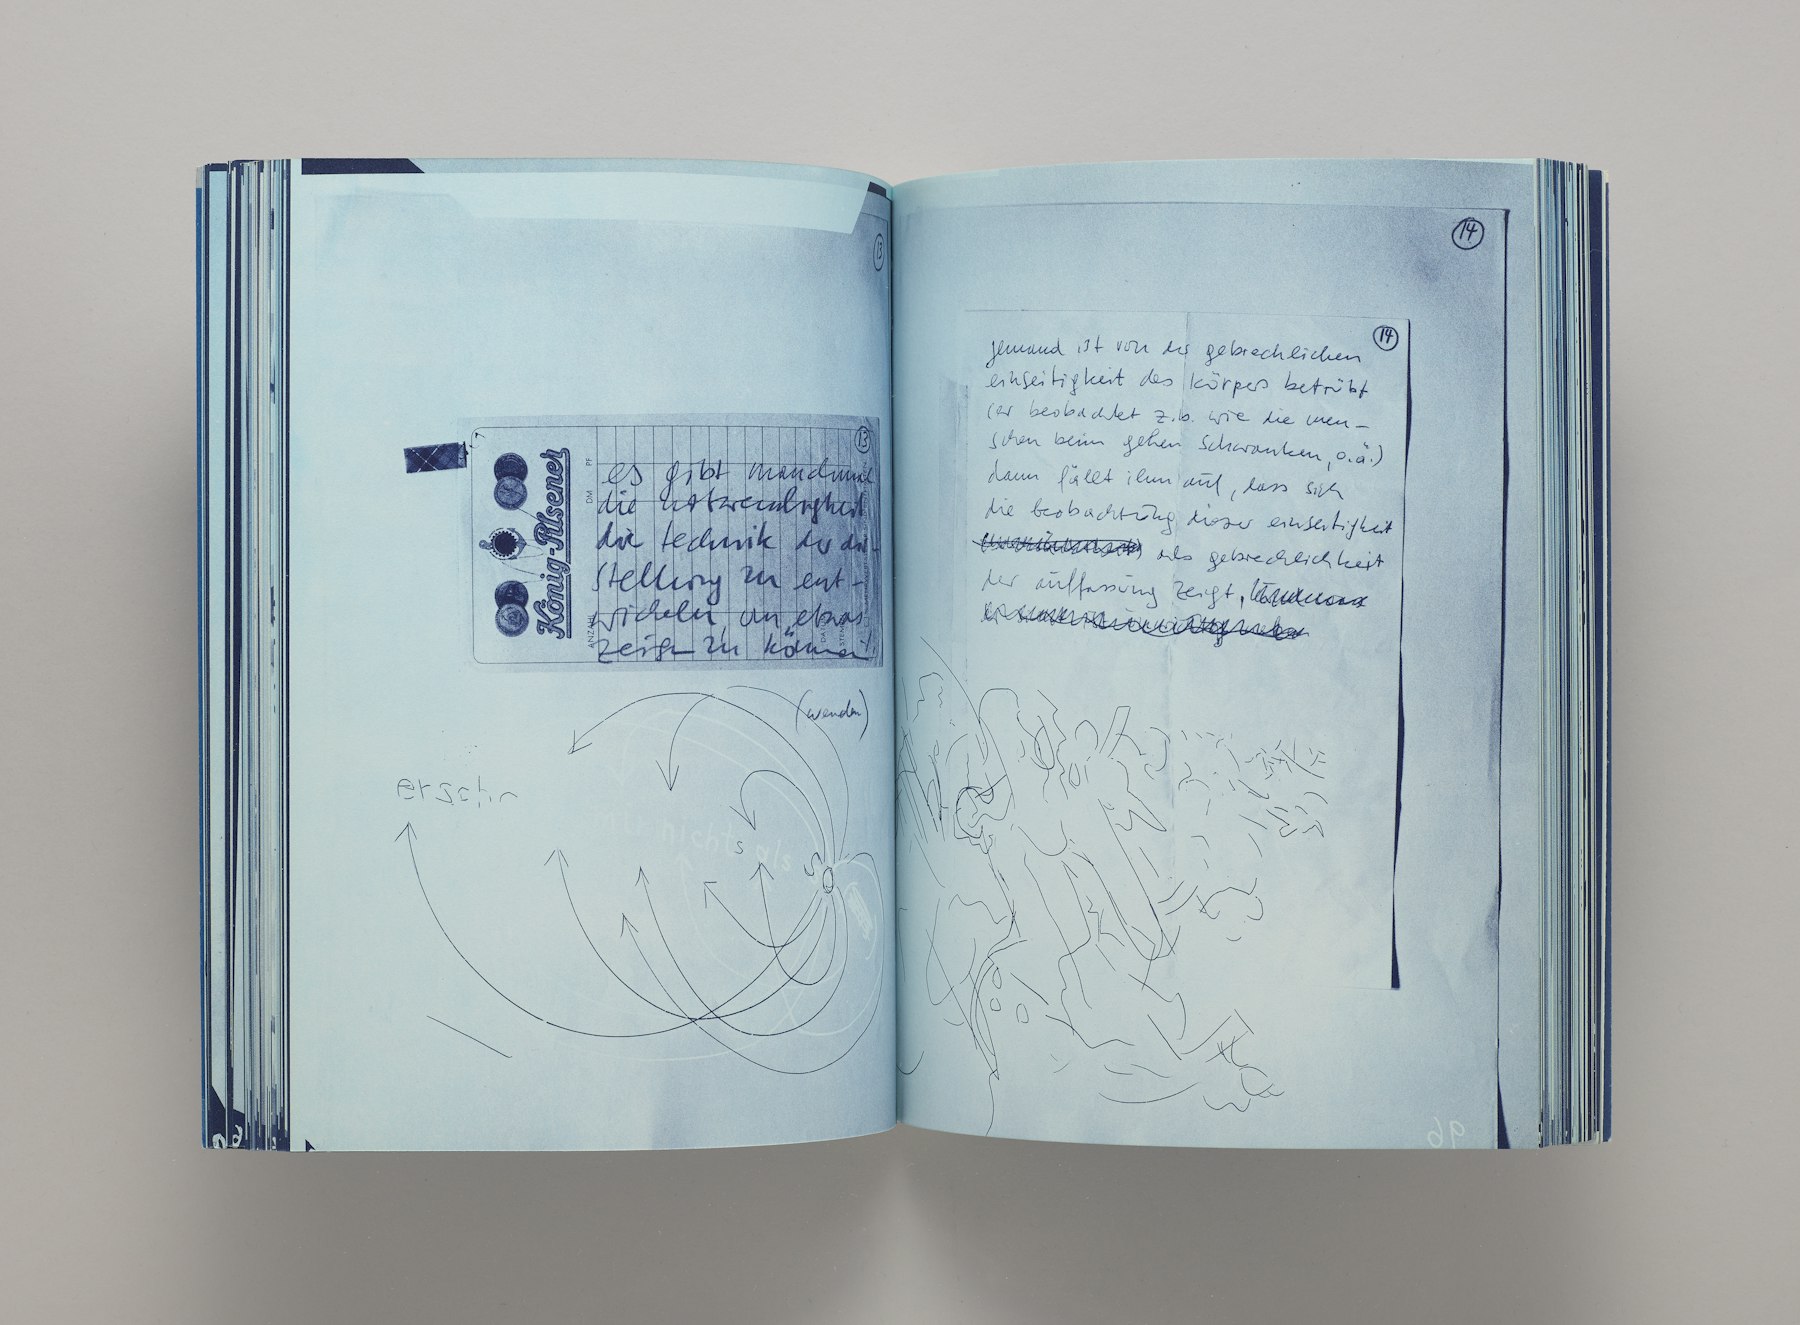 13
13
König-Pilsener
ANZAHL
DM
PF
es gibt manchmal
die notwendigkeit
die technik der dar-
stellung zu ent-
wickeln, um etwas
zeigen zu können!
(wenden)
nichts als
14
14
jemand ist von der gebrechlichen
einseitigkeit des körpers betrübt
(er beobachtet z.b. wie die men-
schen beim gehen schwanken, o.ä.)
dann fällt ihm auf, dass sich
die beobachtung dieser einseitigkeit
als gebrechlichkeit
der auffassung zeigt,
96